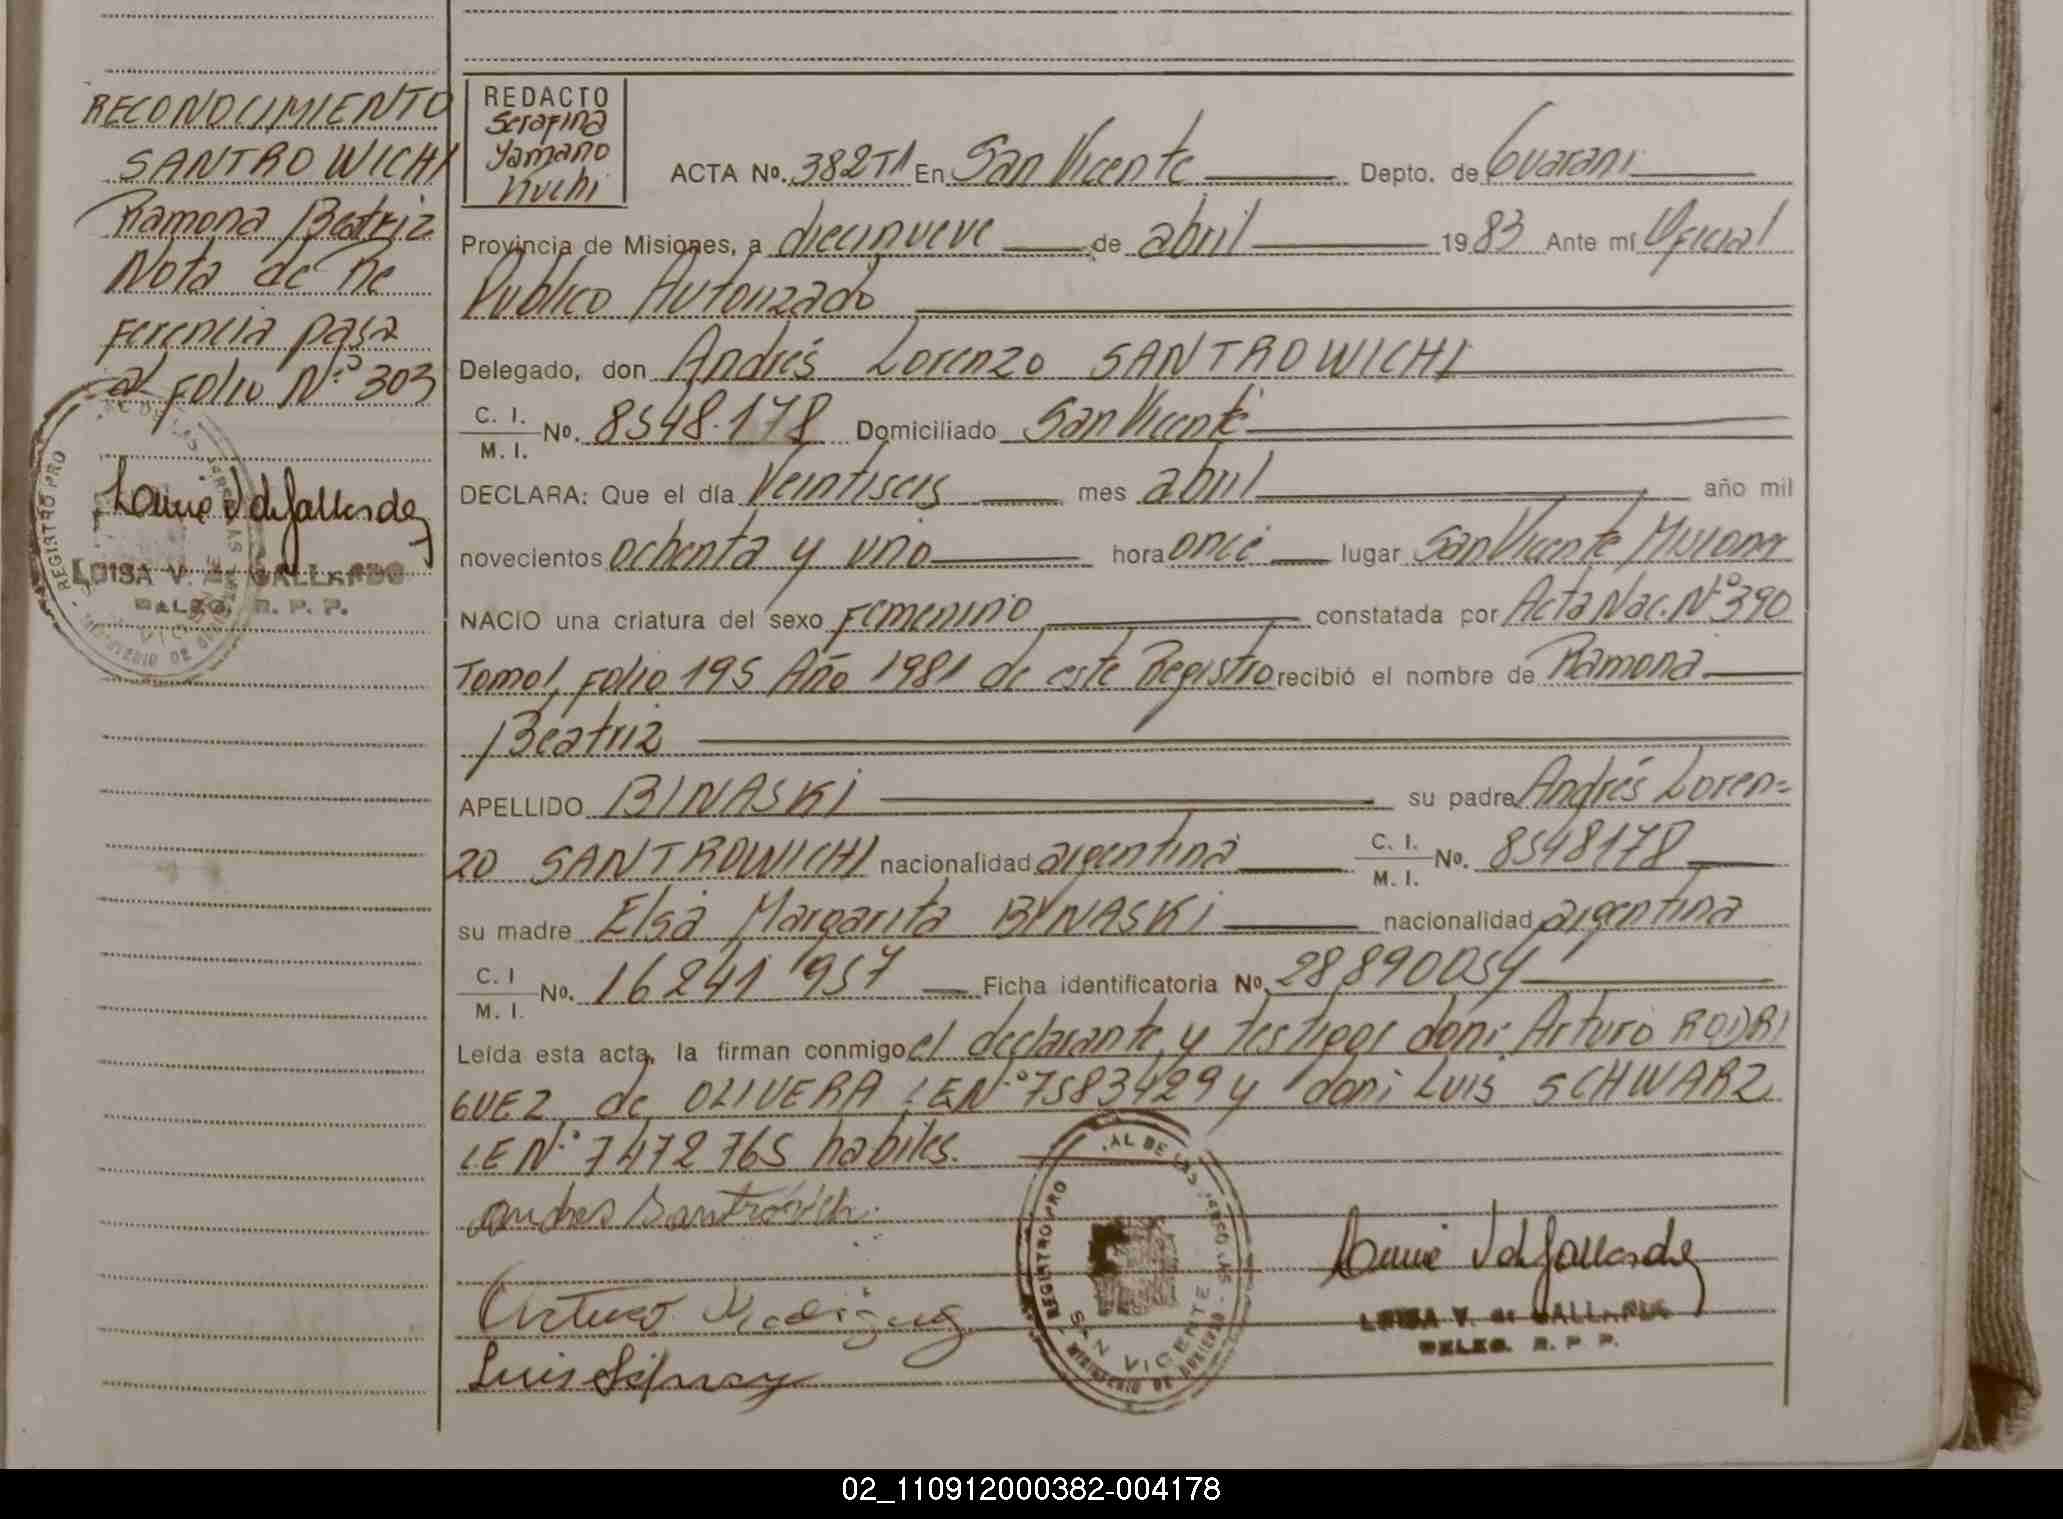 RECONOCIMIENTO
SANTROWICHI
Ramona Beatriz
Nota de Re
ferencia pasa
al folio Nº 303
LUISA V. de GALLARDO
DELEG. R. P. P.
REDACTO
Serafina
Yamano
Kuchi
ACTA No. 382T1 En San Vicente Depto. de Guarani
Provincia de Misiones, a diecinueve de abril 1983 Ante mí Oficial
Publico Autorizado
Delegado, don Andrés Lorenzo SANTROWICHI
C. I.
M. I. No. 8548.178 Domiciliado San Vicente
DECLARA: Que el día Veintiseis mes abril año mil
novecientos ochenta y uno hora once lugar San Vicente Misiones
NACIO una criatura del sexo femenino constatada por Acta Nac. Nº 390
Tomo 1, folio 195 Año 1981 de este Registro recibió el nombre de Ramona
Beatriz
APELLIDO BINASKI su padre Andrés Loren=
zo SANTROWICHI nacionalidad argentina C. I.
M. I. No. 8548178
su madre Elsa Margarita BINASKI nacionalidad argentina
C. I
M. I. No. 16241957 Ficha identificatoria No. 28890054
Leída esta acta, la firman conmigo el declarante, y testigos don: Arturo RODRI
GUEZ de OLIVERA LE Nº 7583429 y don: Luis SCHWARZ
LE Nº 7472765 habiles.
Andres Santrovich
Arturo Rodriguez
Luis
REGISTRO PRO AL DE LAS PERSONAS
SAN VICENTE
MINISTERIO DE GOBIERNO
LUISA V. de GALLARDO
DELEG. R. P. P.
02_110912000382-004178